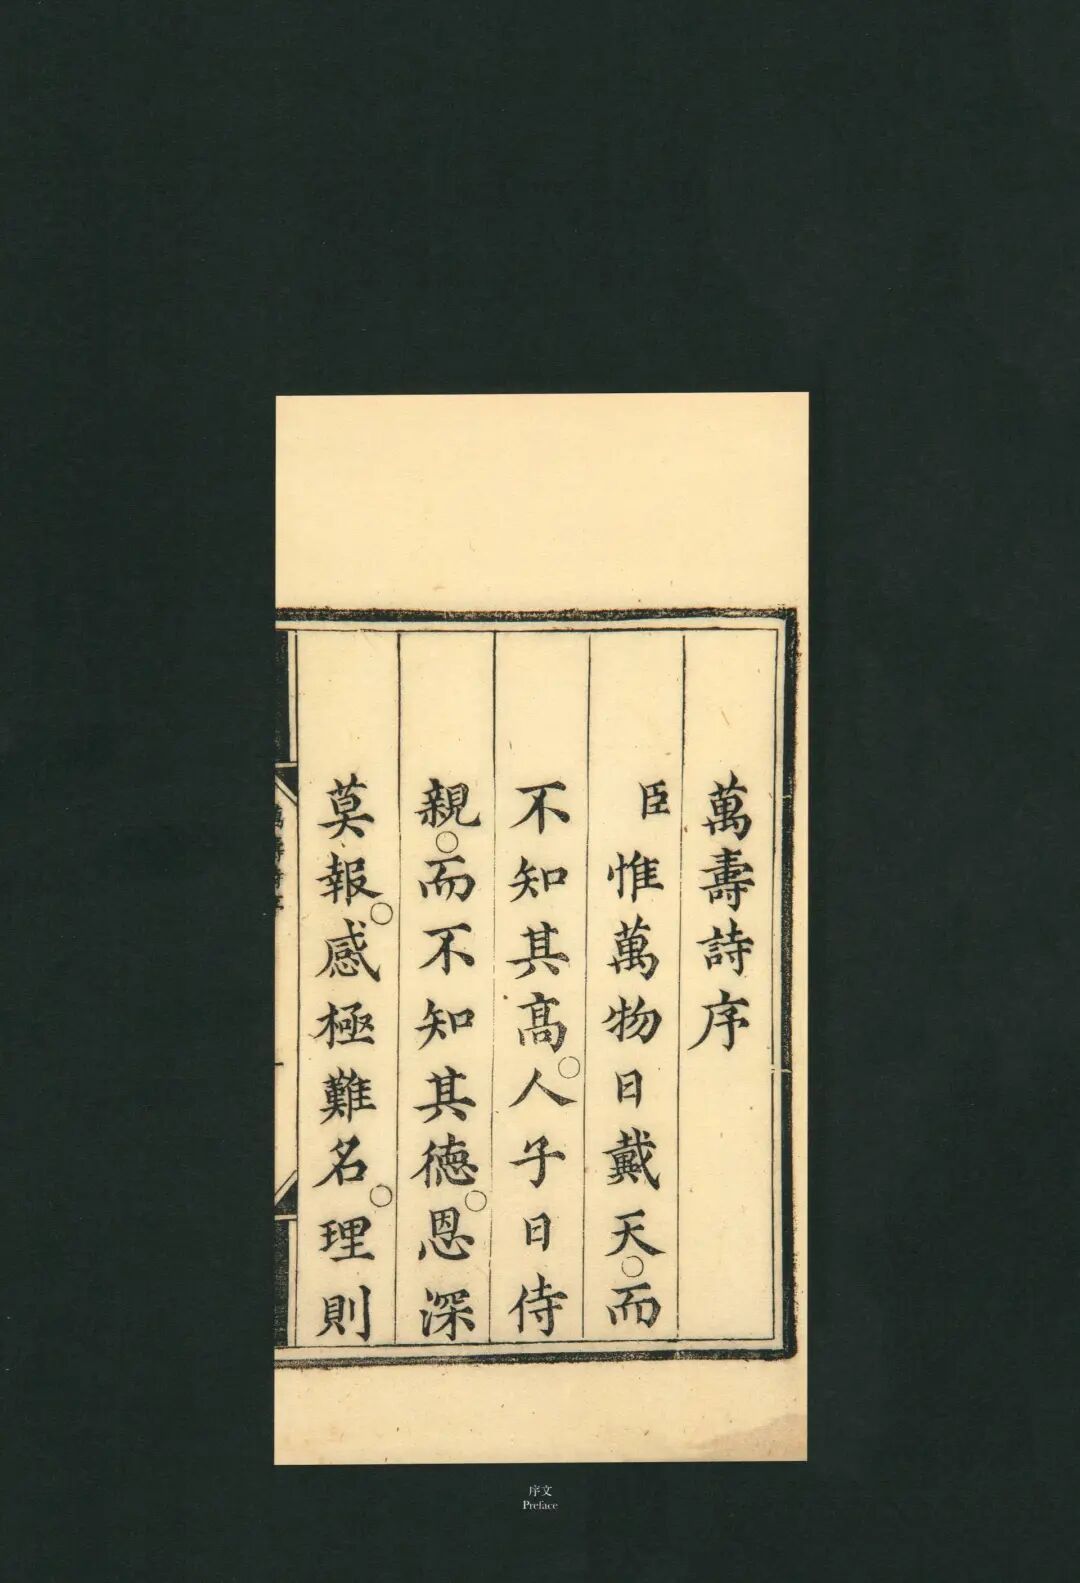 萬壽詩序
臣惟萬物日戴天。而
不知其高。人子日侍
親。而不知其德。恩深
莫報。感極難名。理則
萬壽詩序
序文
Preface